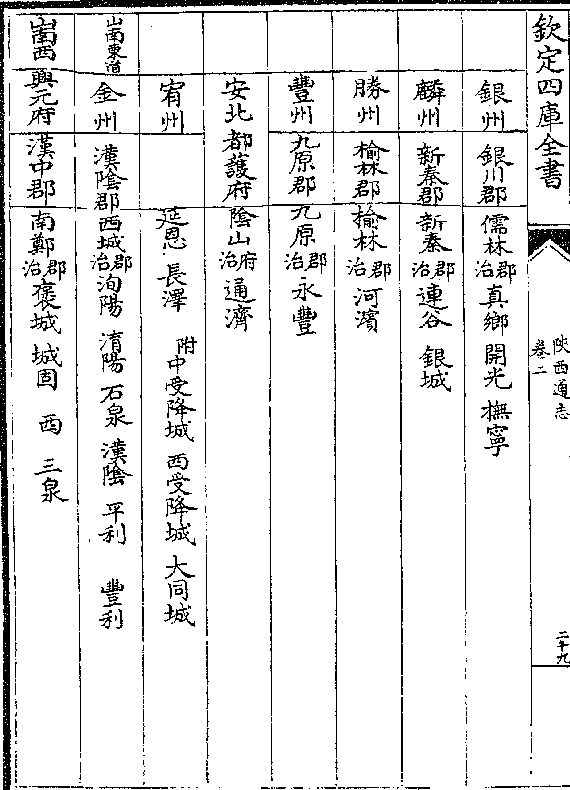 欽定四庫全書
陝西通志
卷二
二十九
銀州 銀川郡 儒林郡治 真鄉 開光 撫寧
麟州 新秦郡 新秦郡治 連谷 銀城
勝州 榆林郡 榆林郡治 河濱
豐州 九原郡 九原郡治 永豐
安北都護府 陰山府治 通濟
宥州 延恩 長澤 附中受降城 西受降城 大同城
山南東道 金州 漢陰郡 西城郡治 洵陽 淯陽 石泉 漢陰 平利 豐利
山南西 興元府 漢中郡 南鄭郡治 褒城 城固 西 三泉